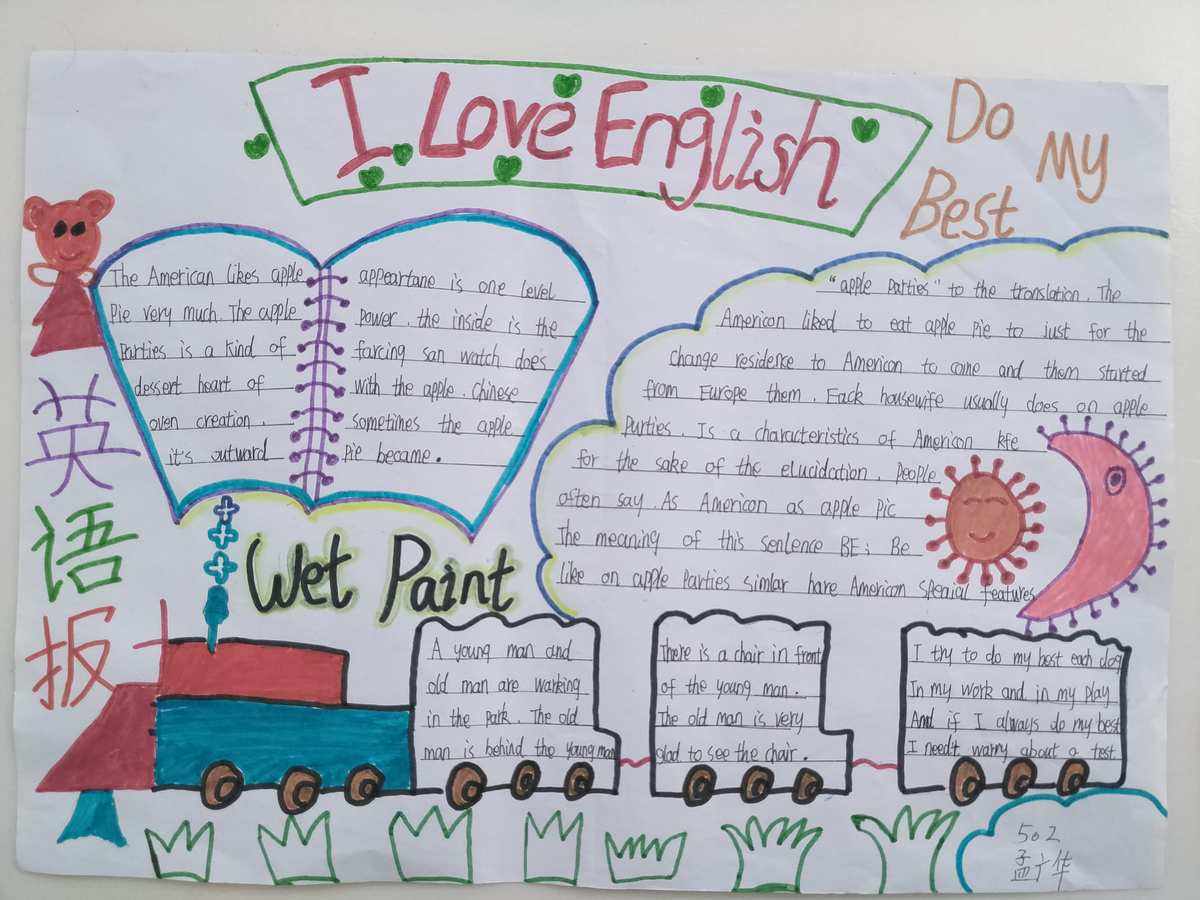 I Love English
Do My
Best
The American likes apple
Pie very much. The apple
Parties is a kind of
dessert heart of
oven creation.
it's outward
appeartane is one level
Power. the inside is the
farcing san watch does
with the apple. Chinese
sometimes the apple
Pie became.
"apple Parties" to the translation. The
American liked to eat apple pie to just for the
change residence to American to come and them started
from Europe them. Eack housewife usually does on apple
Purties. Is a characteristics of American kfe
for the sake of the elucidation. People
often say. As American as apple Pic
The meaning of this sentence BE; Be
like on apple Parties simlar hare American Speaial features
英
语
报
Wet Paint
A young man and
old man are warking
in the park. The old
man is behind the young man
There is a chair in front
of the young man.
The old man is very
glad to see the chair.
I try to do my best each day
In my work and in my play
And if I always do my best
I need't warry about a test
502
孟广华